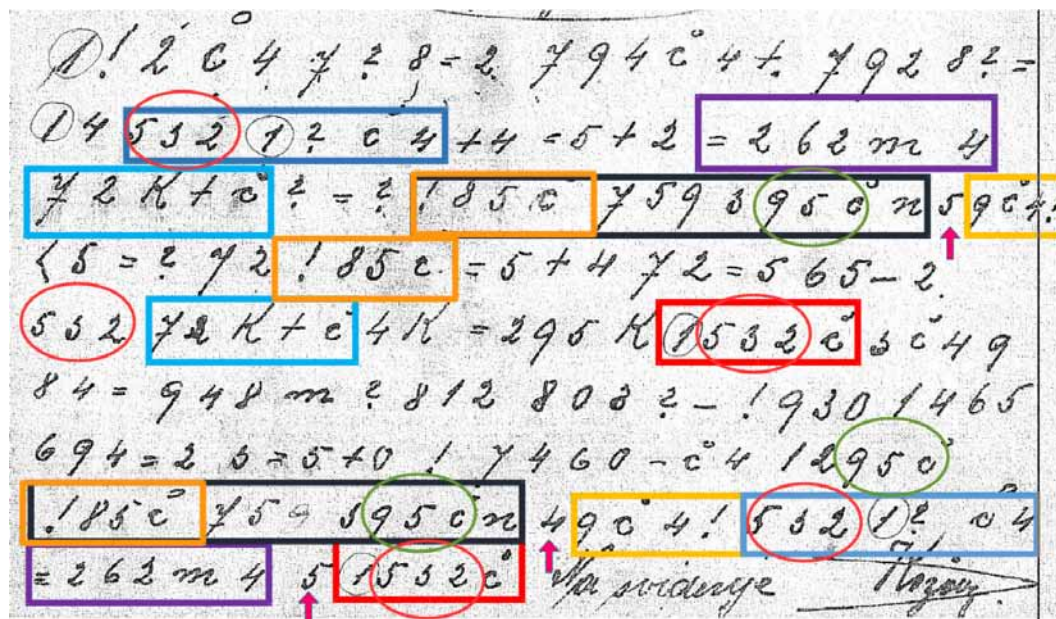 1! 2 c̊ 4 7 ? 8 = 2. 7 9 4 c̊ 4 + . 7 9 2 8 ? =
1 4 5 3 2 1 ? c̊ 4 + 4 = 5 + 2 = 2 6 2 m 4
7 2 K + c̊ ? = ? ! 8 5 c̊ 7 5 9 3 9 5 c̊ n 5 9 c̊ 4 !
5 = ? 7 2 ! 8 5 c. = 5 + 4 7 2 = 5 6 5 - 2.
5 3 2 7 2 K + c̊ 4 K = 2 9 5 K 1 5 3 2 c̊ 3 c̊ 4 9
8 4 = 9 4 8 m ? 8 1 2 8 0 3 ? - ! 9 3 0 1 4 6 5
6 9 4 = 2 3 = 5 + 0 ! 7 4 6 0 - c̊ 4 1 2 9 5 c̊
! 8 5 c̊ 7 5 9 3 9 5 c̊ n 4 9 c̊ 4 ! 5 3 2 1 ? c̊ 4
= 2 6 2 m 4 5 1 5 3 2 c̊ Na svidenje